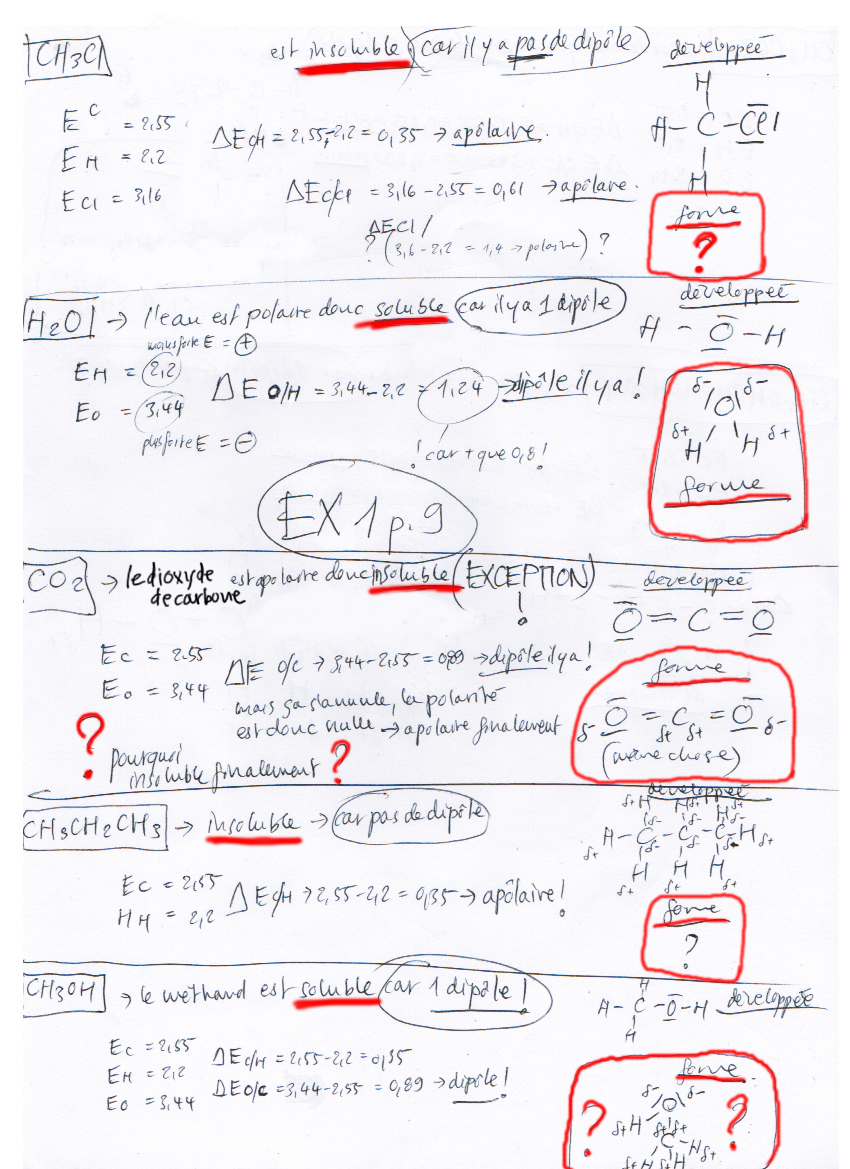 CH3Cl est insoluble car il y a pas de dipôle développée
H
H - C - Cl
H
E C = 2,55
E H = 2,2
E Cl = 3,16
ΔE C/H = 2,55-2,2 = 0,35 → apôlaire.
ΔE C/Cl = 3,16 - 2,55 = 0,61 → apôlaire.
ΔE Cl /
? (3,6 - 2,2 = 1,4 → polaire) ?
forme
?
H2O → l'eau est polaire donc soluble car il y a 1 dipôle
développée
H - O - H
moins forte E = +
E H = 2,2
E O = 3,44
plus forte E = -
ΔE O/H = 3,44 - 2,2 = 1,24 → dipôle il y a !
! car + que 0,8 !
δ- O δ-
δ+ H H δ+
forme
EX 1 p.9
CO2 → le dioxyde de carbone est apolaire donc insoluble (EXCEPTION) !
développée
O = C = O
E C = 2.55
E O = 3,44
ΔE O/C → 3,44 - 2,55 = 0,89 → dipôle il y a !
mais ça s'annule, la polarité
est donc nulle → apolaire finalement
forme
δ- O = C = O δ-
δ+ δ+
(même chose)
? pourquoi
insoluble finalement ?
CH3CH2CH3 → insoluble → car pas de dipôle
développée
δ+ H H δ+ H δ+
δ- δ- δ-
H - C - C - C - H δ+
δ+ δ- δ- δ-
H H H
δ+ δ+ δ+
E C = 2,55
H H = 2,2
ΔE C/H → 2,55 - 2,2 = 0,35 → apôlaire !
forme
?
CH3OH → le méthanol est soluble car 1 dipôle !
H
H - C - O - H développée
H
E C = 2,55
E H = 2,2
E O = 3,44
ΔE C/H = 2,55 - 2,2 = 0,35
ΔE O/C = 3,44 - 2,55 = 0,89 → dipôle !
forme
? δ- O δ- ?
δ+ H δ+ δ+
C H δ+
δ+ H δ+ H